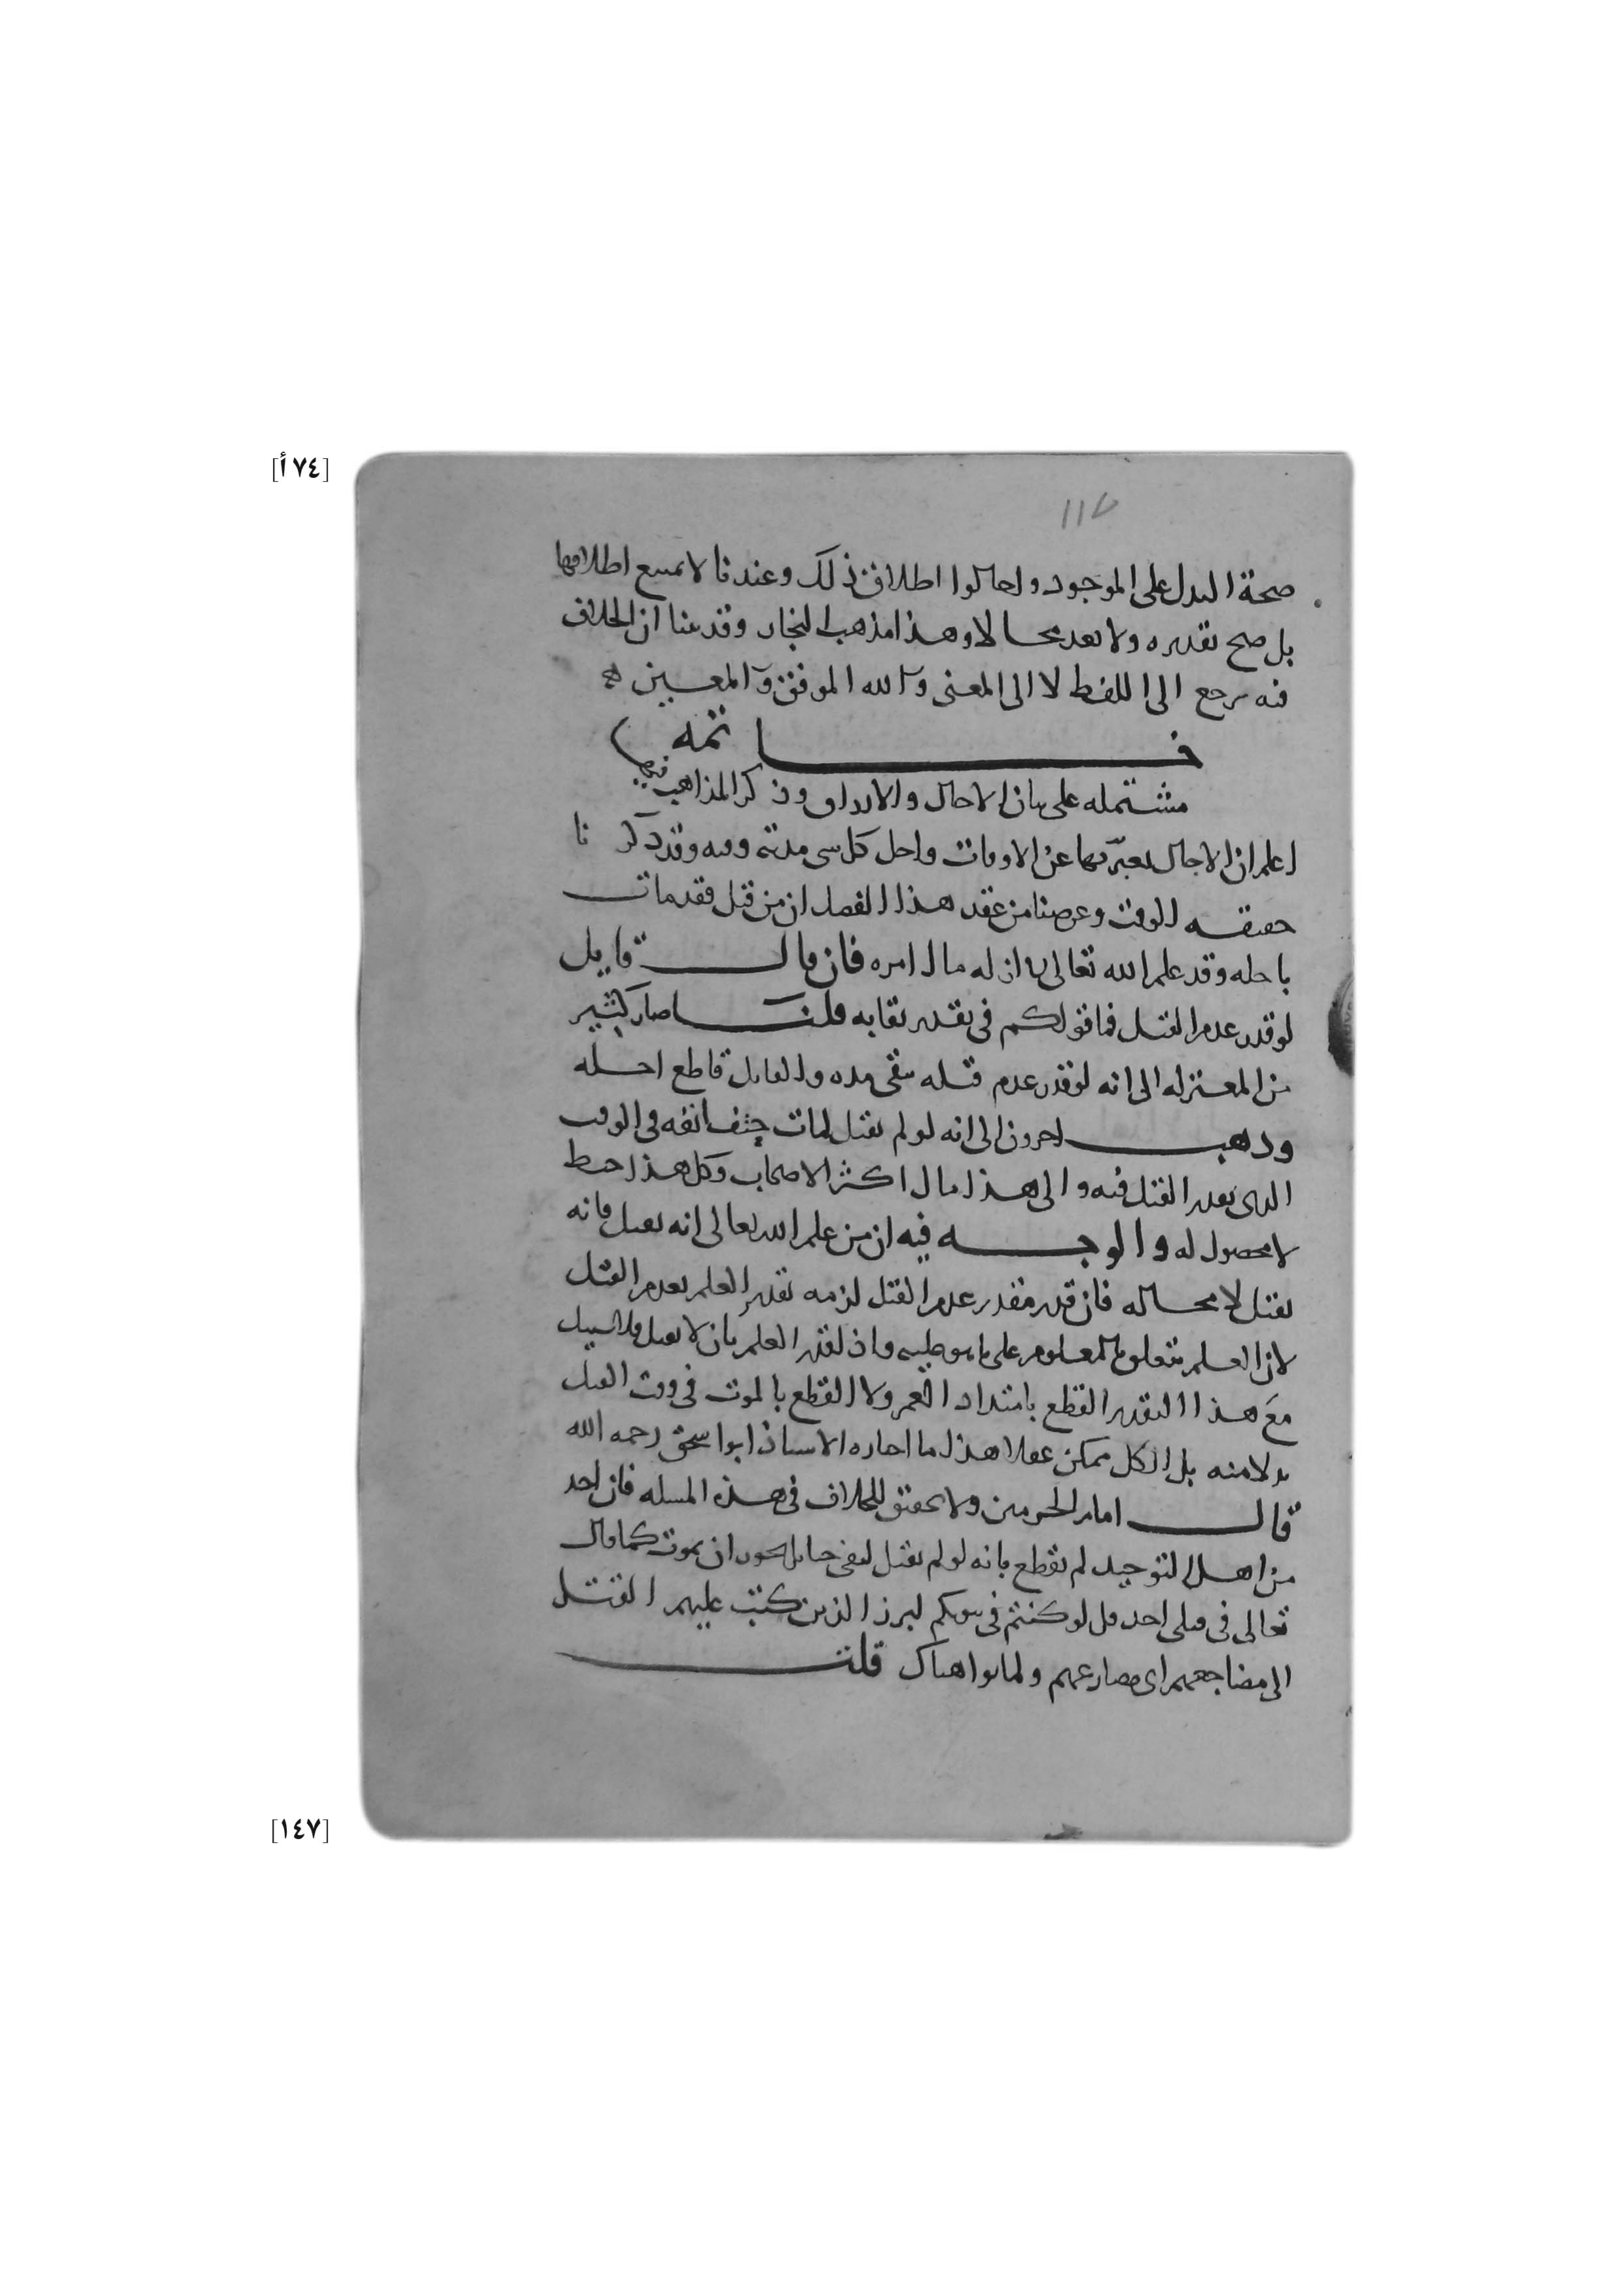 [٧٤ أ]
١١٧
صحة البدل على الموجود واحالوا اطلاق ذلك وعندنا لا يمتنع اطلاقها
بل صح تقديره ولا يعد محالا وهذا مذهب النجار وقد بينا ان الخلاف
فيه يرجع الى اللفظ لا الى المعنى والله الموفق والمعين
خاتمه
مشتمله على بيان الاجال والارزاق وذكر المذاهب فيها
اعلم ان الاجال يعبّر بها عن الاوقات واجل كل شي مدته ووقته وقد ذكرنا
حقيقه الوقت وغرضنا من عقد هذا الفصل ان من قتل فقد مات
باجله وقد علم الله تعالى ان له مال امره فان قال قايل
لو قدر عدم القتل فما قولكم في تقدير بقايه قلنا صار كثير
من المعتزله الى انه لو قدر عدم قتله بقى مده والقاتل قاطع اجله
وذهب اخرون الى انه لو لم يقتل لمات حتف انفه في الوقت
الذي يقدر القتل فيه والى هذا مال اكثر الاصحاب وكل هذا خبط
لا محصول له والوجه فيه ان من علم الله تعالى انه يقتل فانه
يقتل لا محاله فان قدر مقدر عدم القتل لزمه تقدير العلم بعدم القتل
لان العلم يتعلق بالمعلوم على ما هو عليه واذ لقدر العلم بان لا يقتل فلا سبيل
مع هذا التقدير القطع بامتداد العمر ولا القطع بالموت في وقت القتل
بدلا منه بل الكل ممكن عقلا هذا ما اختاره الاستاذ ابو اسحق رحمه الله
قال امام الحرمين ولا تحقق للخلاف في هذه المسله فان احد
من اهل التوحيد لم يقطع بانه لو لم يقتل لبقى حيا بل يجوز ان يموت كما قال
تعالى في قتلى احد قل لو كنتم في بيوتكم لبرز الذين كتب عليهم القتل
الى مضاجعهم اي مصارعهم ولماتوا هناك قلت
[١٤٧]